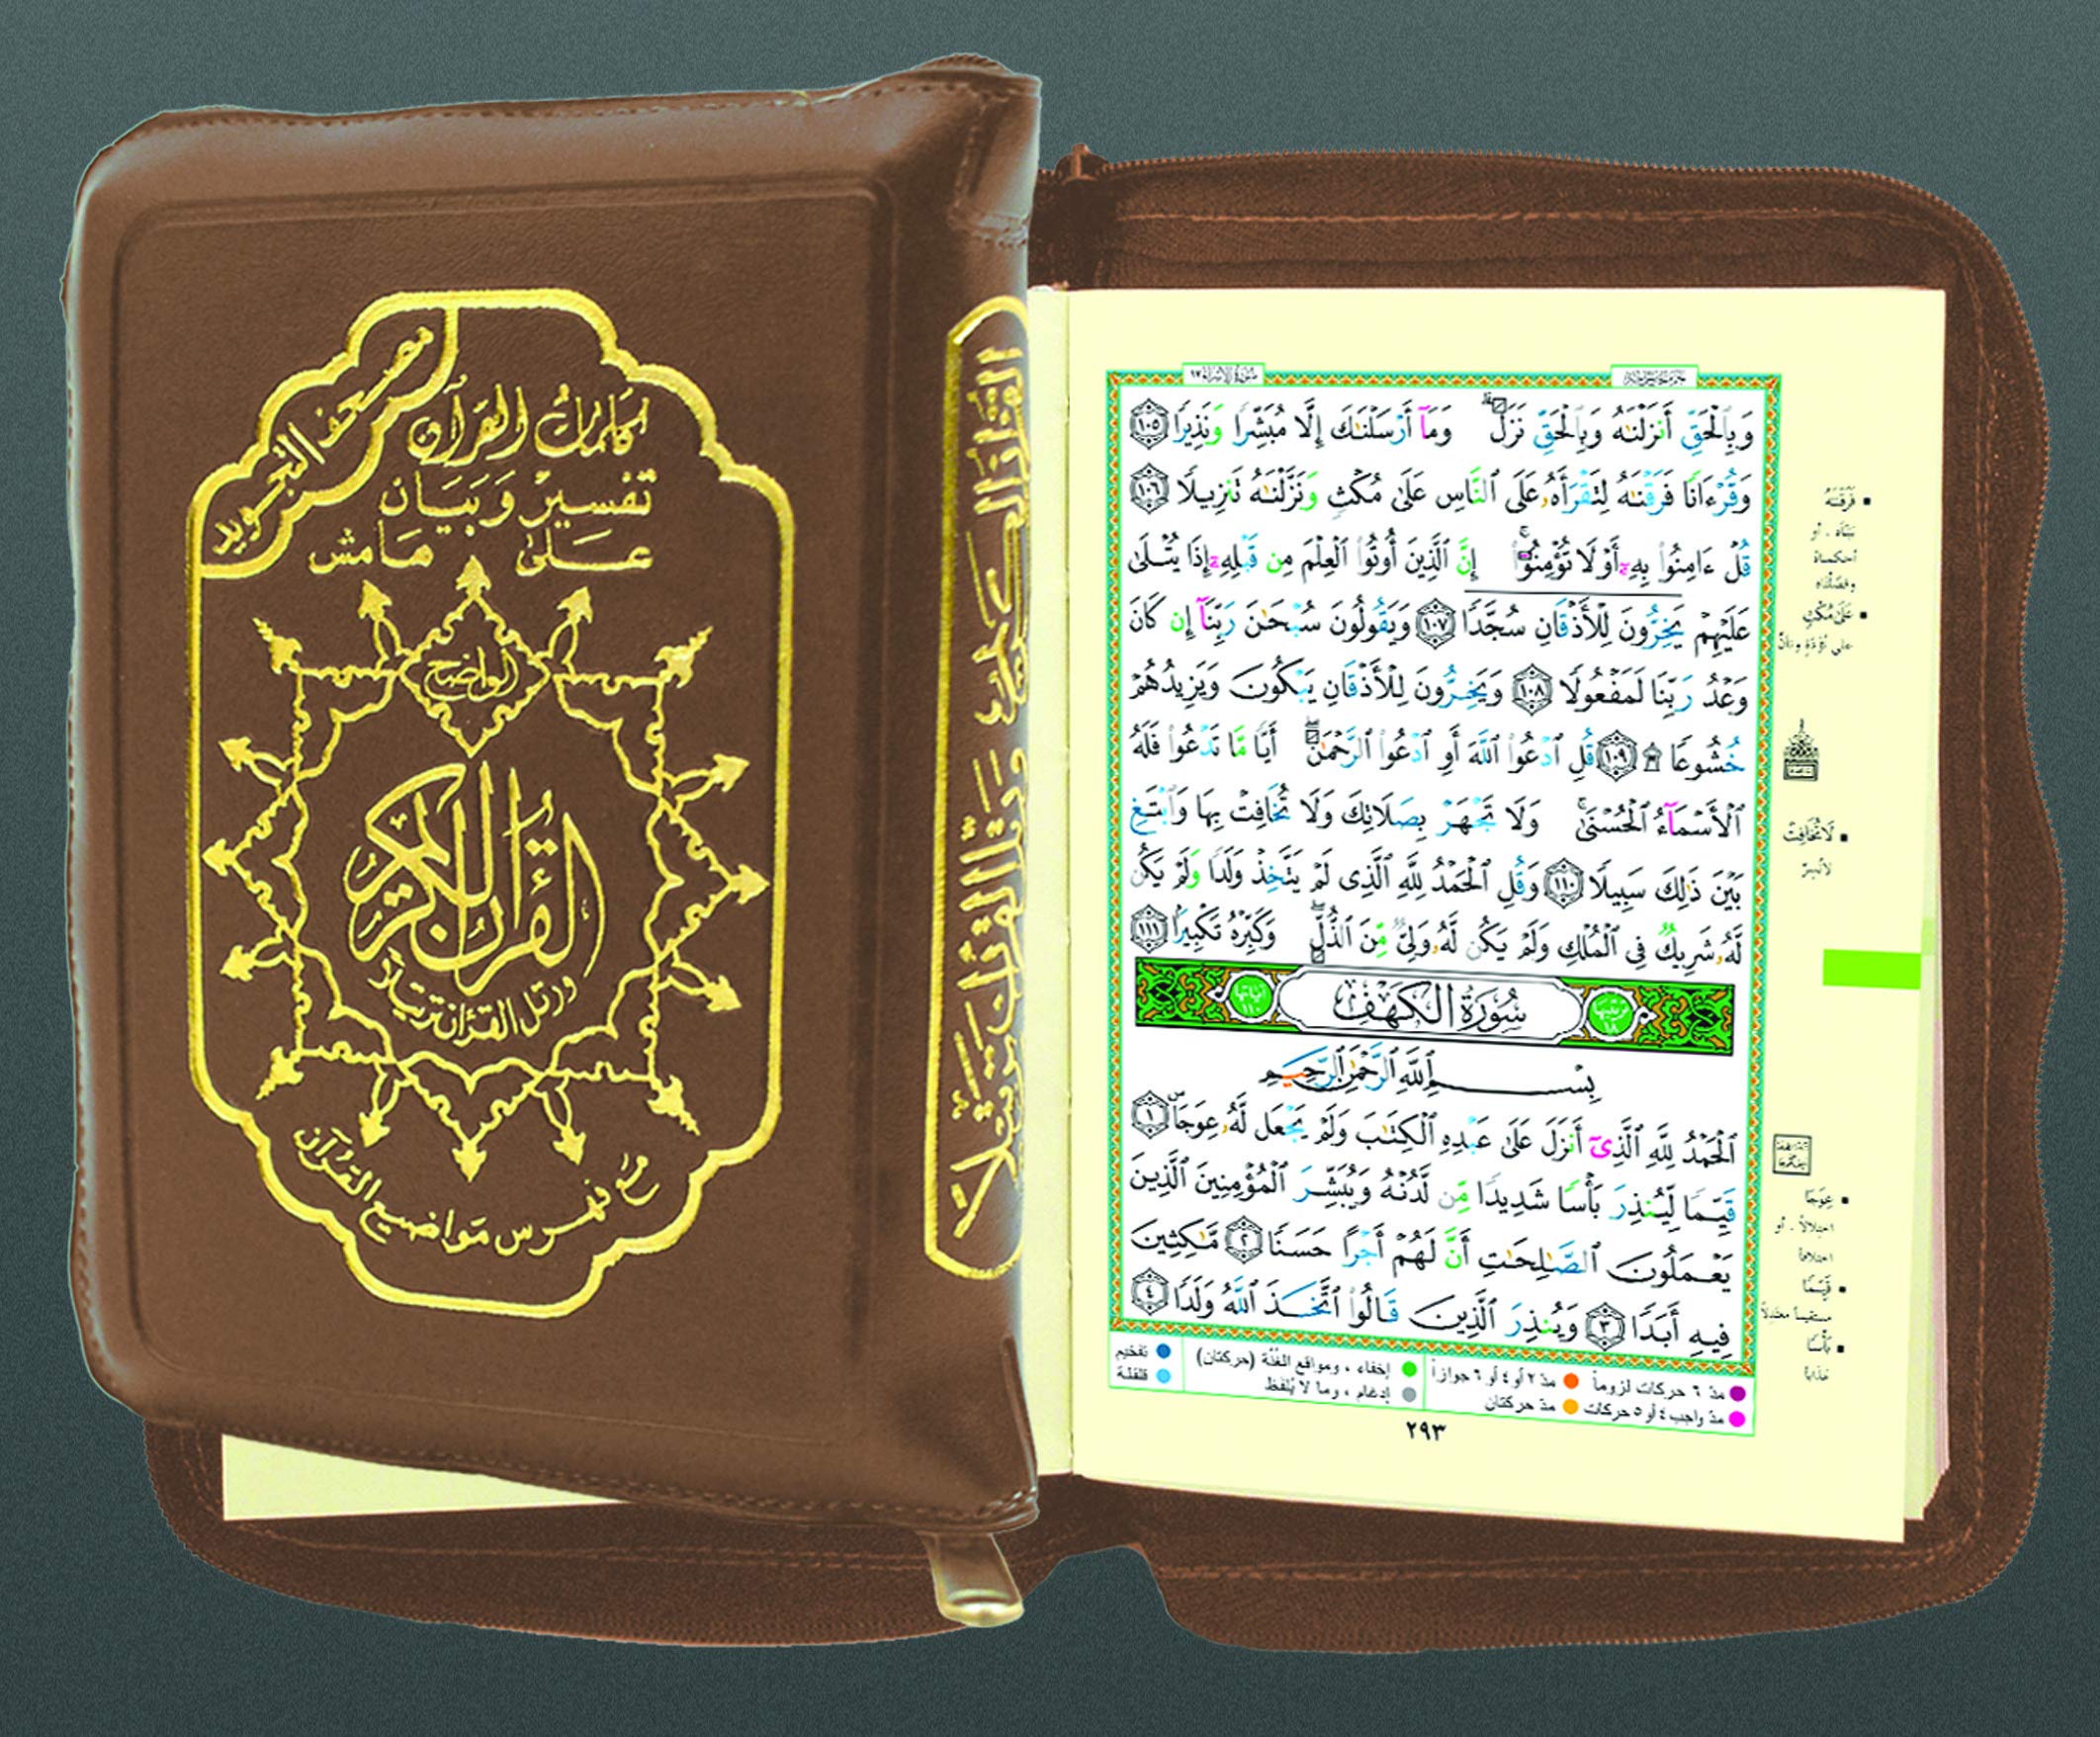 مصحف التجويد
كلمات القرآن
تفسير وبيان
على هامش
الواضح
القرآن الكريم
ورتل القرآن ترتيلا
مع فهرس مواضيع القرآن
القرآن الكريم ورتل القرآن ترتيلا
سورة الإسراء ١٧
وَبِٱلْحَقِّ أَنزَلْنَٰهُ وَبِٱلْحَقِّ نَزَلَ ۗ وَمَآ أَرْسَلْنَٰكَ إِلَّا مُبَشِّرًا وَنَذِيرًا ١٠٥
وَقُرْءَانًا فَرَقْنَٰهُ لِتَقْرَأَهُۥ عَلَى ٱلنَّاسِ عَلَىٰ مُكْثٍ وَنَزَّلْنَٰهُ تَنزِيلًا ١٠٦
قُلْ ءَامِنُوا۟ بِهِۦٓ أَوْ لَا تُؤْمِنُوٓا۟ ۚ إِنَّ ٱلَّذِينَ أُوتُوا۟ ٱلْعِلْمَ مِن قَبْلِهِۦٓ إِذَا يُتْلَىٰ
عَلَيْهِمْ يَخِرُّونَ لِلْأَذْقَانِ سُجَّدًا ١٠٧ وَيَقُولُونَ سُبْحَٰنَ رَبِّنَآ إِن كَانَ
وَعْدُ رَبِّنَا لَمَفْعُولًا ١٠٨ وَيَخِرُّونَ لِلْأَذْقَانِ يَبْكُونَ وَيَزِيدُهُمْ
خُشُوعًا ۩ ١٠٩ قُلِ ٱدْعُوا۟ ٱللَّهَ أَوِ ٱدْعُوا۟ ٱلرَّحْمَٰنَ ۖ أَيًّا مَّا تَدْعُوا۟ فَلَهُ
ٱلْأَسْمَآءُ ٱلْحُسْنَىٰ ۚ وَلَا تَجْهَرْ بِصَلَاتِكَ وَلَا تُخَافِتْ بِهَا وَٱبْتَغِ
بَيْنَ ذَٰلِكَ سَبِيلًا ١١٠ وَقُلِ ٱلْحَمْدُ لِلَّهِ ٱلَّذِى لَمْ يَتَّخِذْ وَلَدًا وَلَمْ يَكُن
لَّهُۥ شَرِيكٌ فِى ٱلْمُلْكِ وَلَمْ يَكُن لَّهُۥ وَلِىٌّ مِّنَ ٱلذُّلِّ ۖ وَكَبِّرْهُ تَكْبِيرًۢا ١١١
ترتيبها ١٨ سُورَةُ الكَهْفِ آياتها ١١٠
بِسْمِ ٱللَّهِ ٱلرَّحْمَٰنِ ٱلرَّحِيمِ
ٱلْحَمْدُ لِلَّهِ ٱلَّذِىٓ أَنزَلَ عَلَىٰ عَبْدِهِ ٱلْكِتَٰبَ وَلَمْ يَجْعَل لَّهُۥ عِوَجَاۜ ١
قَيِّمًا لِّيُنذِرَ بَأْسًا شَدِيدًا مِّن لَّدُنْهُ وَيُبَشِّرَ ٱلْمُؤْمِنِينَ ٱلَّذِينَ
يَعْمَلُونَ ٱلصَّٰلِحَٰتِ أَنَّ لَهُمْ أَجْرًا حَسَنًا ٢ مَّٰكِثِينَ
فِيهِ أَبَدًا ٣ وَيُنذِرَ ٱلَّذِينَ قَالُوا۟ ٱتَّخَذَ ٱللَّهُ وَلَدًا ٤
فَرَقْنَٰهُ
بيّنّاه . أو
أحكمناه
وفصّلناه
عَلَىٰ مُكْثٍ
على تُؤَدَة وتأنّ
لَا تُخَافِتْ
لا تُسِرّ
عِوَجًا
اختلالاً . أو
اختلافاً
قَيِّمًا
مستقيماً معتدلاً
بَأْسًا
عذاباً
مدّ ٦ حركات لزوماً مدّ ٢ أو ٤ أو ٦ جوازاً إخفاء ، ومواقع الغُنّة (حركتان) تفخيم
مدّ واجب ٤ أو ٥ حركات مدّ حركتان إدغام ، وما لا يُلفظ قلقلة
٢٩٣